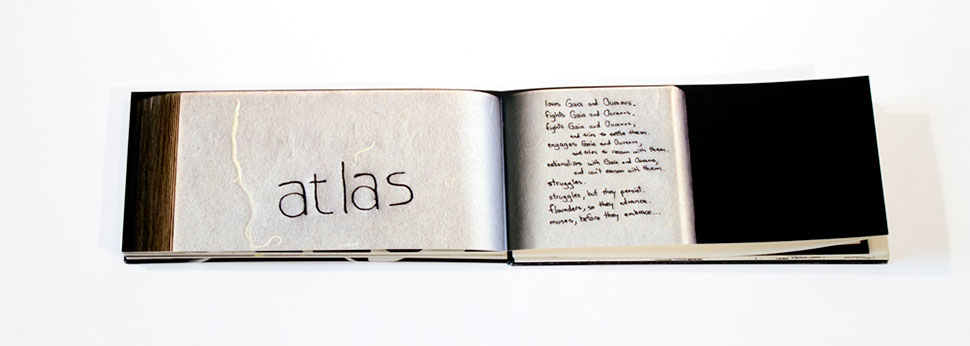 atlas
loves Gaia and Ouranus.
fights Gaia and Ouranus.
fights Gaia and Ouranus,
and tries to settle them.
engages Gaia and Ouranus,
and tries to reason with them.
rationalizes with Gaia and Ouranus,
and can't reason with them.
struggles.
struggles, but they persist.
flounders, so they advance.
moses, before they embrace...